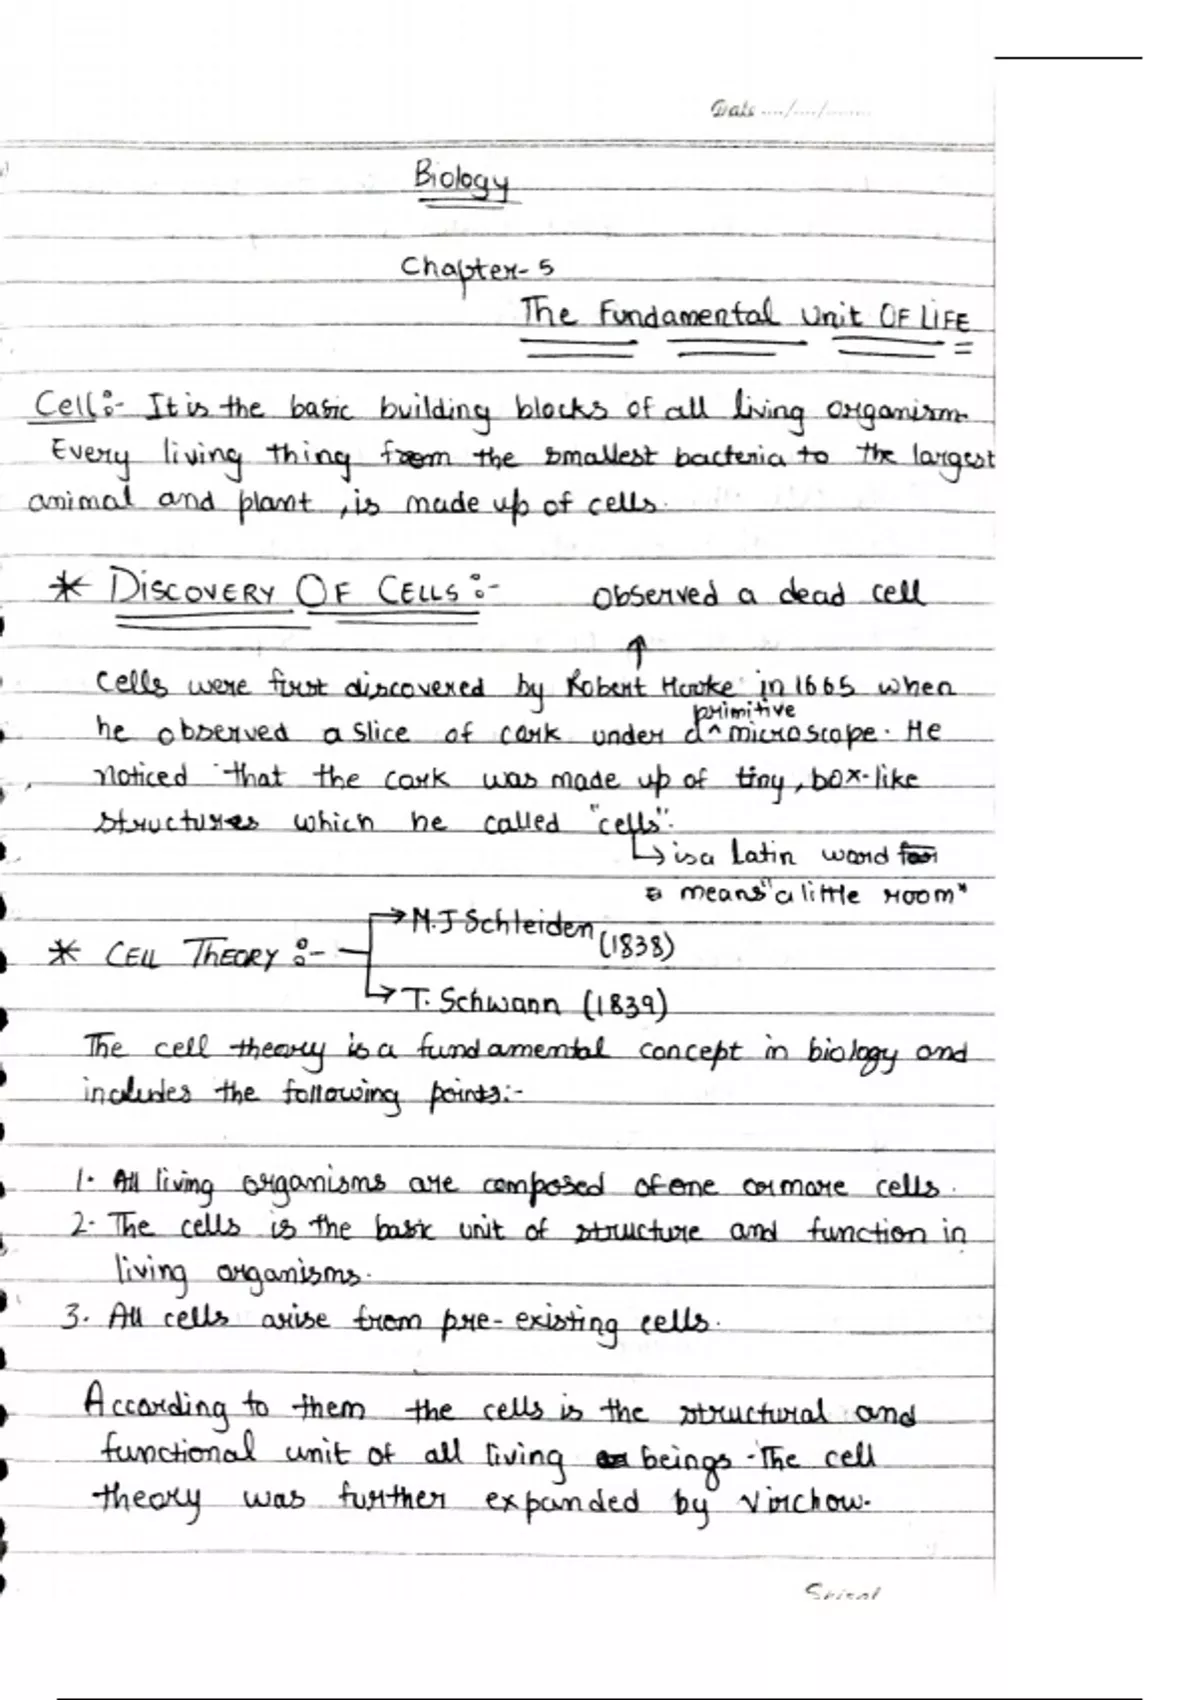 Date ..../..../........
Biology
Chapter-5
The Fundamental Unit OF LIFE
Cell:- It is the basic building blocks of all living organism.
Every living thing from the smallest bacteria to the largest
animal and plant, is made up of cells.
* DISCOVERY OF CELLS :- Observed a dead cell
↑
Cells were first discovered by Robert Hooke in 1665 when
primitive
he observed a slice of cork under a ^ microscope. He
noticed that the cork was made up of tiny, box-like
structures which he called "cells".
↳ is a Latin word for
means "a little room"
→ M.J Schleiden (1838)
* CELL THEORY :-
↳ T. Schwann (1839)
The cell theory is a fundamental concept in biology and
includes the following points:-
1. All living organisms are composed of one or more cells.
2. The cells is the basic unit of structure and function in
living organisms.
3. All cells arise from pre-existing cells.
According to them the cells is the structural and
functional unit of all living beings. The cell
theory was further expanded by Virchow.